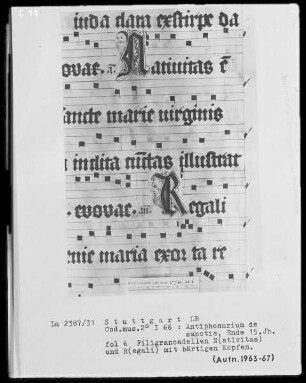 inda clara ex stirpe da
ovae. a. Nativitas ē
ancte marie virginis
a inclita cūctas illustrat
. evovae. Regali
enie maria exorta re
La 2387/31 Stuttgart LB
Cod.mus.2° I 66 : Antiphonarium de
sanctis, Ende 15.Jh.
fol 6 Filigrancadellen N(ativitas)
und R(egali) mit bärtigen Köpfen.
(Aufn.1963-67)